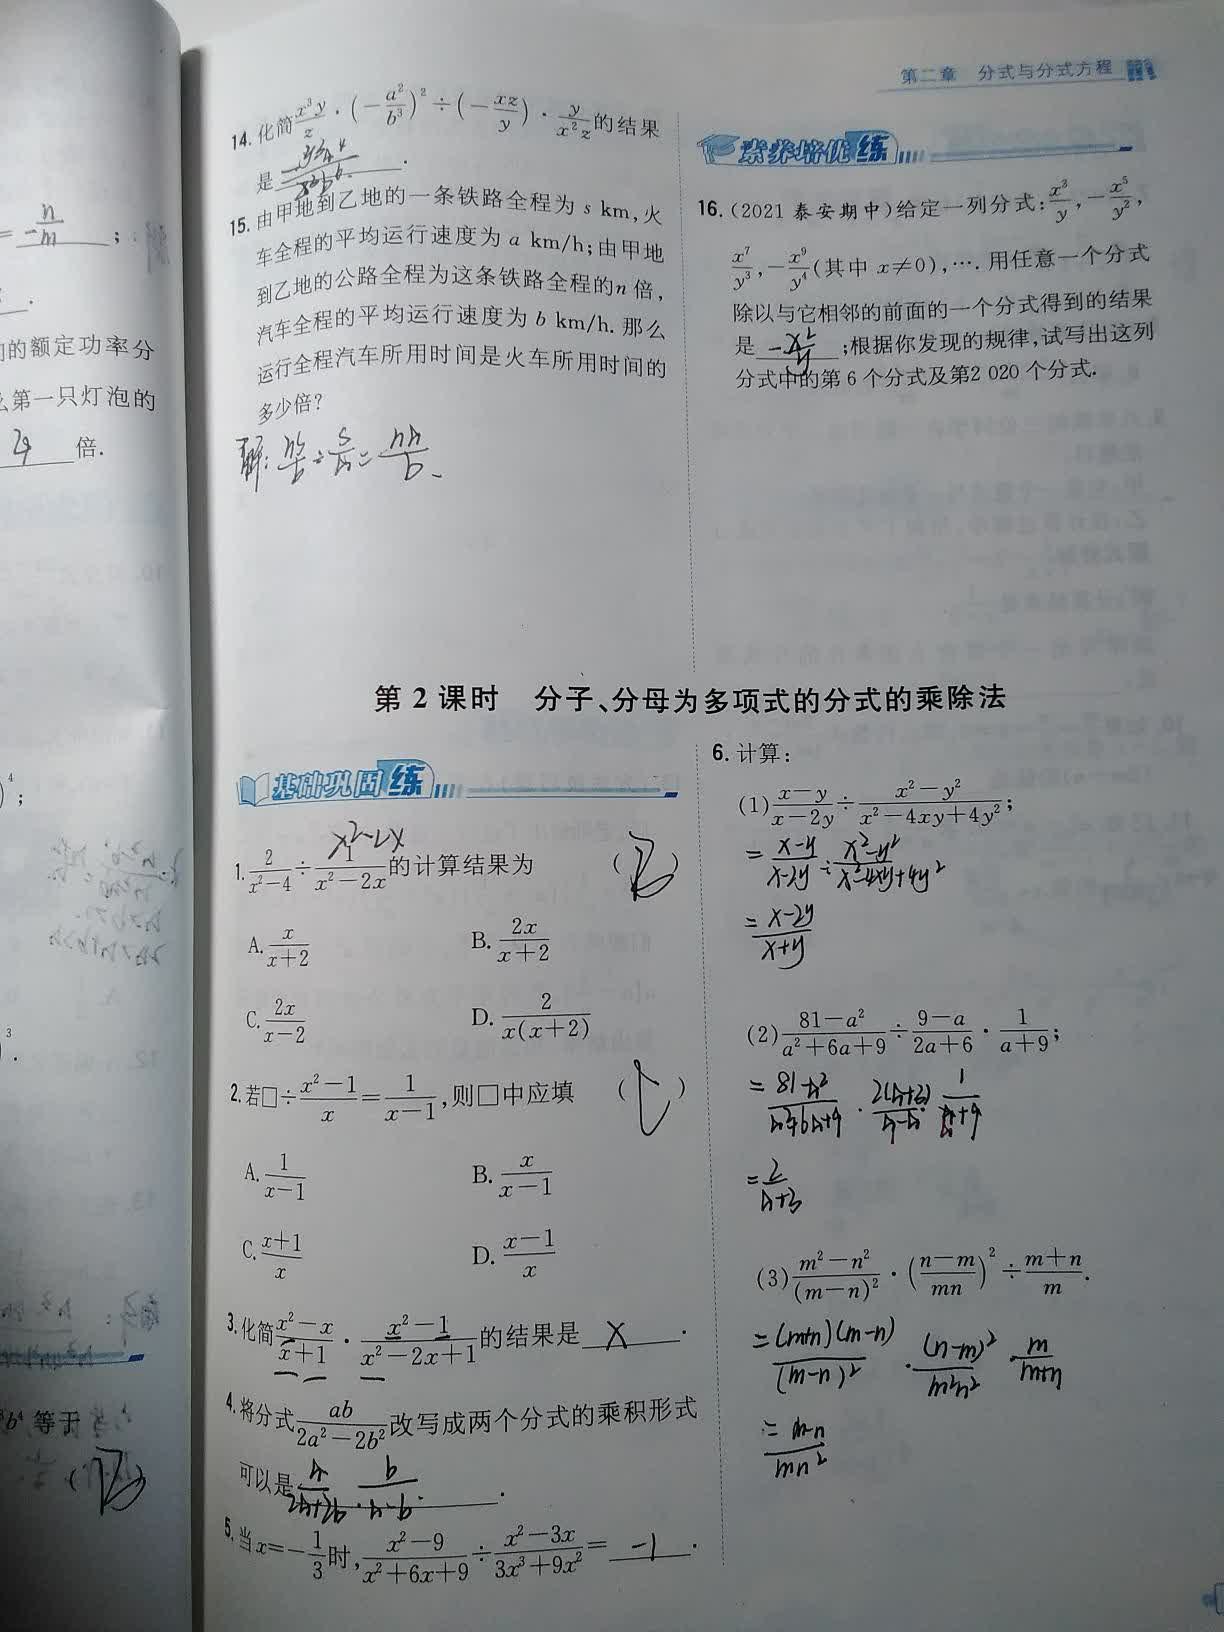 第二章 分式与分式方程
= -n/m ;
的额定功率分
么第一只灯泡的
4 倍.
b⁴ 等于
(B)
14. 化简 x³y/z · (-a²/b³)² ÷ (-xz/y) · y/x²z 的结果
是
15. 由甲地到乙地的一条铁路全程为 s km,火
车全程的平均运行速度为 a km/h;由甲地
到乙地的公路全程为这条铁路全程的n 倍,
汽车全程的平均运行速度为 b km/h. 那么
运行全程汽车所用时间是火车所用时间的
多少倍?
解: ns/b ÷ s/a = an/b
素养培优练
16. (2021 泰安期中)给定一列分式: x³/y, -x⁵/y²,
x⁷/y³, -x⁹/y⁴ (其中 x≠0),…. 用任意一个分式
除以与它相邻的前面的一个分式得到的结果
是 -x²/y ;根据你发现的规律,试写出这列
分式中的第 6 个分式及第2 020 个分式.
第 2 课时 分子、分母为多项式的分式的乘除法
基础巩固练
x²-2x
1. 2/(x²-4) ÷ 1/(x²-2x) 的计算结果为 (B)
A. x/(x+2) B. 2x/(x+2)
C. 2x/(x-2) D. 2/(x(x+2))
2. 若□÷ (x²-1)/x = 1/(x-1) ,则□中应填 (C)
A. 1/(x-1) B. x/(x-1)
C. (x+1)/x D. (x-1)/x
3. 化简 (x²-x)/(x+1) · (x²-1)/(x²-2x+1) 的结果是 x .
4. 将分式 ab/(2a²-2b²) 改写成两个分式的乘积形式
可以是 a/(2a+2b) · b/(a-b) .
5. 当x=-1/3时, (x²-9)/(x²+6x+9) ÷ (x²-3x)/(3x³+9x²) = -1 .
6. 计算:
(1) (x-y)/(x-2y) ÷ (x²-y²)/(x²-4xy+4y²) ;
= (x-y)/(x-2y) ÷ (x²-y²)/(x²-4xy+4y²)
= (x-2y)/(x+y)
(2) (81-a²)/(a²+6a+9) ÷ (9-a)/(2a+6) · 1/(a+9) ;
= (81-a²)/(a²+6a+9) · 2(a+3)/(9-a) · 1/(a+9)
= 2/(a+3)
(3) (m²-n²)/(m-n)² · ((n-m)/mn)² ÷ (m+n)/m .
= (m+n)(m-n)/(m-n)² · (n-m)²/m²n² · m/(m+n)
= (m-n)/mn²